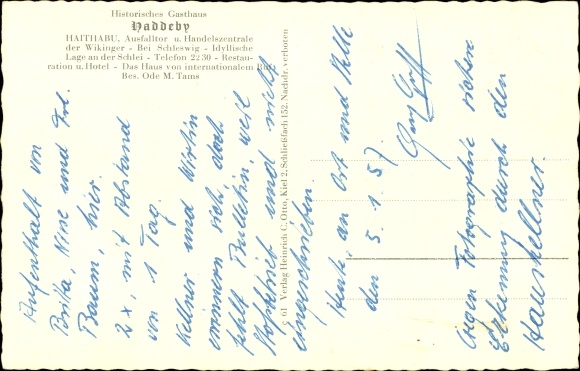 Historisches Gasthaus
Haddeby
HAITHABU, Ausfalltor u. Handelszentrale
der Wikinger - Bei Schleswig - Idyllische
Lage an der Schlei - Telefon 22 30 - Restau-
ration u. Hotel - Das Haus von internationalem Ruf
Bes. Ode M. Tams
c 61 Verlag Heinrich C. Otto, Kiel 2, Schließfach 152, Nachdr. verboten
Aufenthalt von
Brita, Nine und Frl.
Bauen, hier.
2 x, mit Abstand
von 1 Tag.
Kellner und Wirtin
erinnern sich, doch
fehlt Bulletin, weil
Hofbetrieb und nicht
eingeschrieben.
Heute, an Ort und Stelle
den 5. 1. 57.
Gegen Fotographie sichere
Erkennung durch den
Hauskellner.